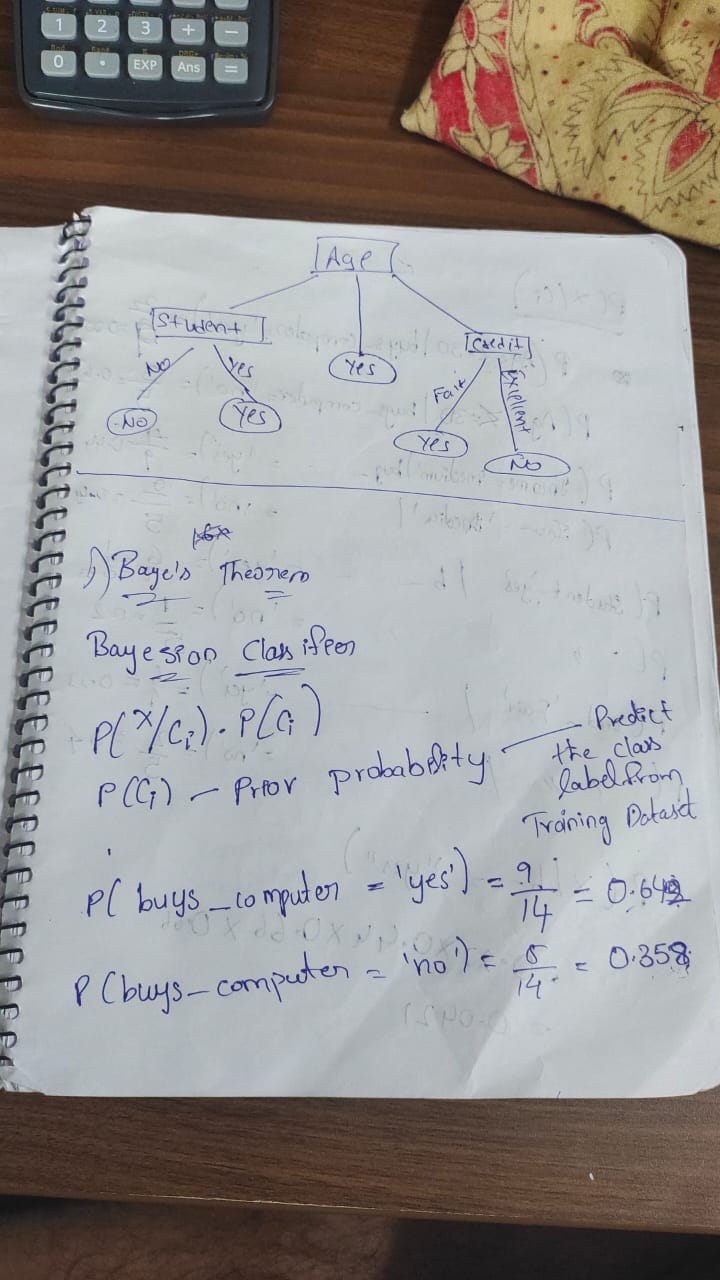 1 2 3 + −
0 • EXP Ans =
Age
Student
Credit
No
Yes
Yes
Fair
Excellent
No
Yes
Yes
No
1) Baye's Theorem
Bayesian Classifier
P(X/Ci) . P(Ci)
P(Ci) – Prior probability
Predict
the class
label from
Training Dataset
P( buys_computer = 'yes') = 9/14 = 0.642
P(buys_computer = 'no') = 5/14 = 0.358